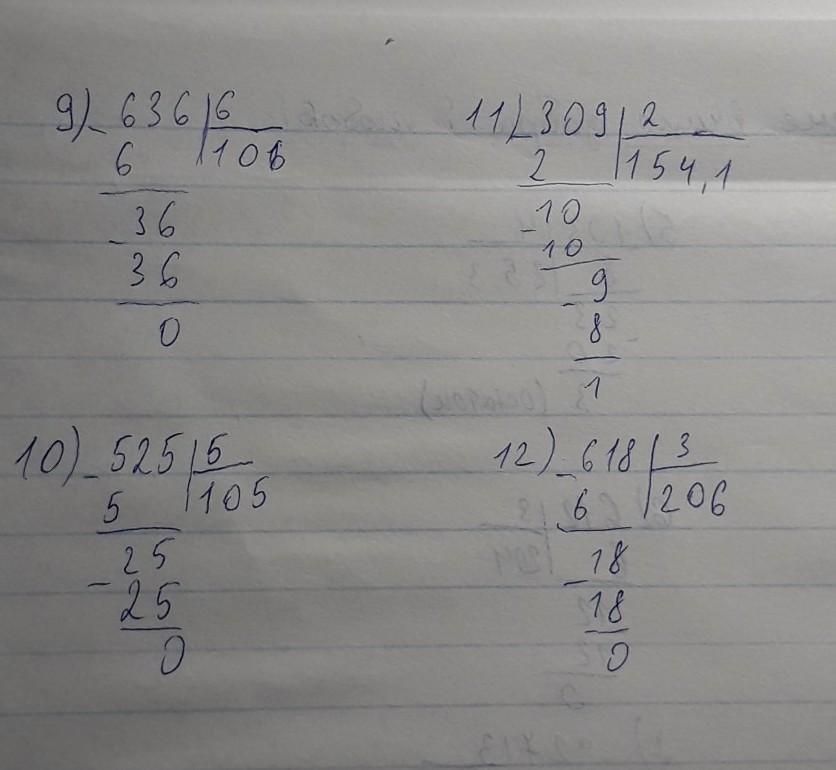 9) - 636 | 6
6 | 106
- 36
36
0
11) - 309 | 2
2 | 154,1
- 10
10
- 9
8
1
10) - 525 | 5
5 | 105
- 25
25
0
12) - 618 | 3
6 | 206
- 18
18
0